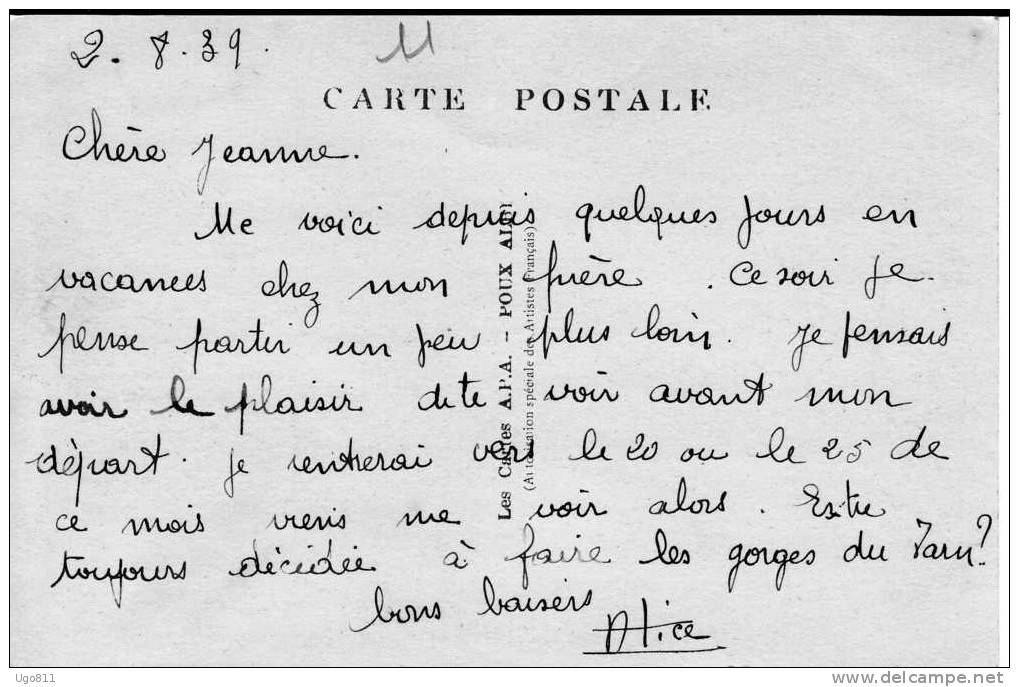 2. 8. 39.
11
CARTE POSTALE
Chère Jeanne.
Me voici depuis quelques jours en
vacances chez mon frère. Ce soir je
pense partir un peu plus loin. Je pensais
avoir le plaisir de te voir avant mon
départ. je rentrerai vers le 20 ou le 25 de
ce mois viens me voir alors. Es-tu
toujours décidée à faire les gorges du Tarn?
bons baisers
Alice
Les Cartes A.P.A. - POUX ALBI
(Autorisation spéciale des Artistes Français)
Ugo811
delcampe.net